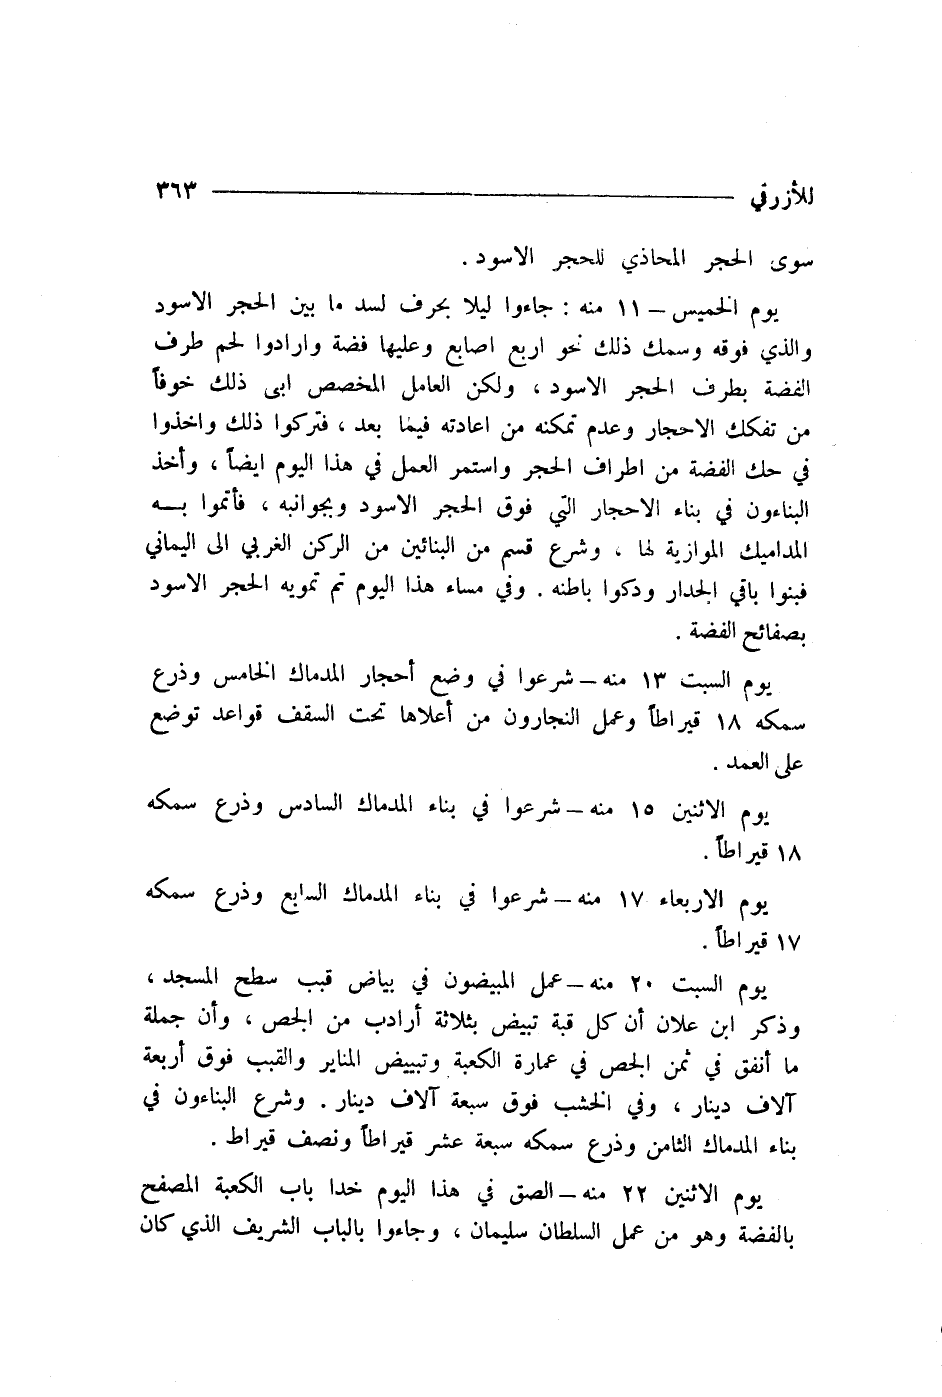 للأزرقي ٣٦٣
سوى الحجر المحاذي للحجر الاسود .
يوم الخميس – ١١ منه : جاءوا ليلا بحرف لسد ما بين الحجر الاسود
والذي فوقه وسمك ذلك نحو اربع اصابع وعليها فضة وارادوا لحم طرف
الفضة بطرف الحجر الاسود ، ولكن العامل المخصص ابى ذلك خوفاً
من تفكك الاحجار وعدم تمكنه من اعادته فيما بعد ، فتركوا ذلك واخذوا
في حك الفضة من اطراف الحجر واستمر العمل في هذا اليوم ايضاً ، وأخذ
البناءون في بناء الاحجار التي فوق الحجر الاسود وبجوانبه ، فأتموا بـه
المداميك الموازية لها ، وشرع قسم من البنائين من الركن الغربي الى اليماني
فبنوا باقي الجدار ودكوا باطنه . وفي مساء هذا اليوم تم تمويه الحجر الاسود
بصفائح الفضة .
يوم السبت ١٣ منه – شرعوا في وضع أحجار المدماك الخامس وذرع
سمكه ١٨ قيراطاً وعمل النجارون من أعلاها تحت السقف قواعد توضع
على العمد .
يوم الاثنين ١٥ منه – شرعوا في بناء المدماك السادس وذرع سمكه
١٨ قيراطاً .
يوم الاربعاء ١٧ منه – شرعوا في بناء المدماك السابع وذرع سمكه
١٧ قيراطاً .
يوم السبت ٢٠ منه – عمل المبيضون في بياض قبب سطح المسجد ،
وذكر ابن علان أن كل قبة تبيض بثلاثة أرادب من الجص ، وأن جملة
ما أنفق في ثمن الجص في عمارة الكعبة وتبييض المناير والقبب فوق أربعة
آلاف دينار ، وفي الخشب فوق سبعة آلاف دينار . وشرع البناءون في
بناء المدماك الثامن وذرع سمكه سبعة عشر قيراطاً ونصف قيراط .
يوم الاثنين ٢٢ منه – الصق في هذا اليوم خدا باب الكعبة المصفح
بالفضة وهو من عمل السلطان سليمان ، وجاءوا بالباب الشريف الذي كان